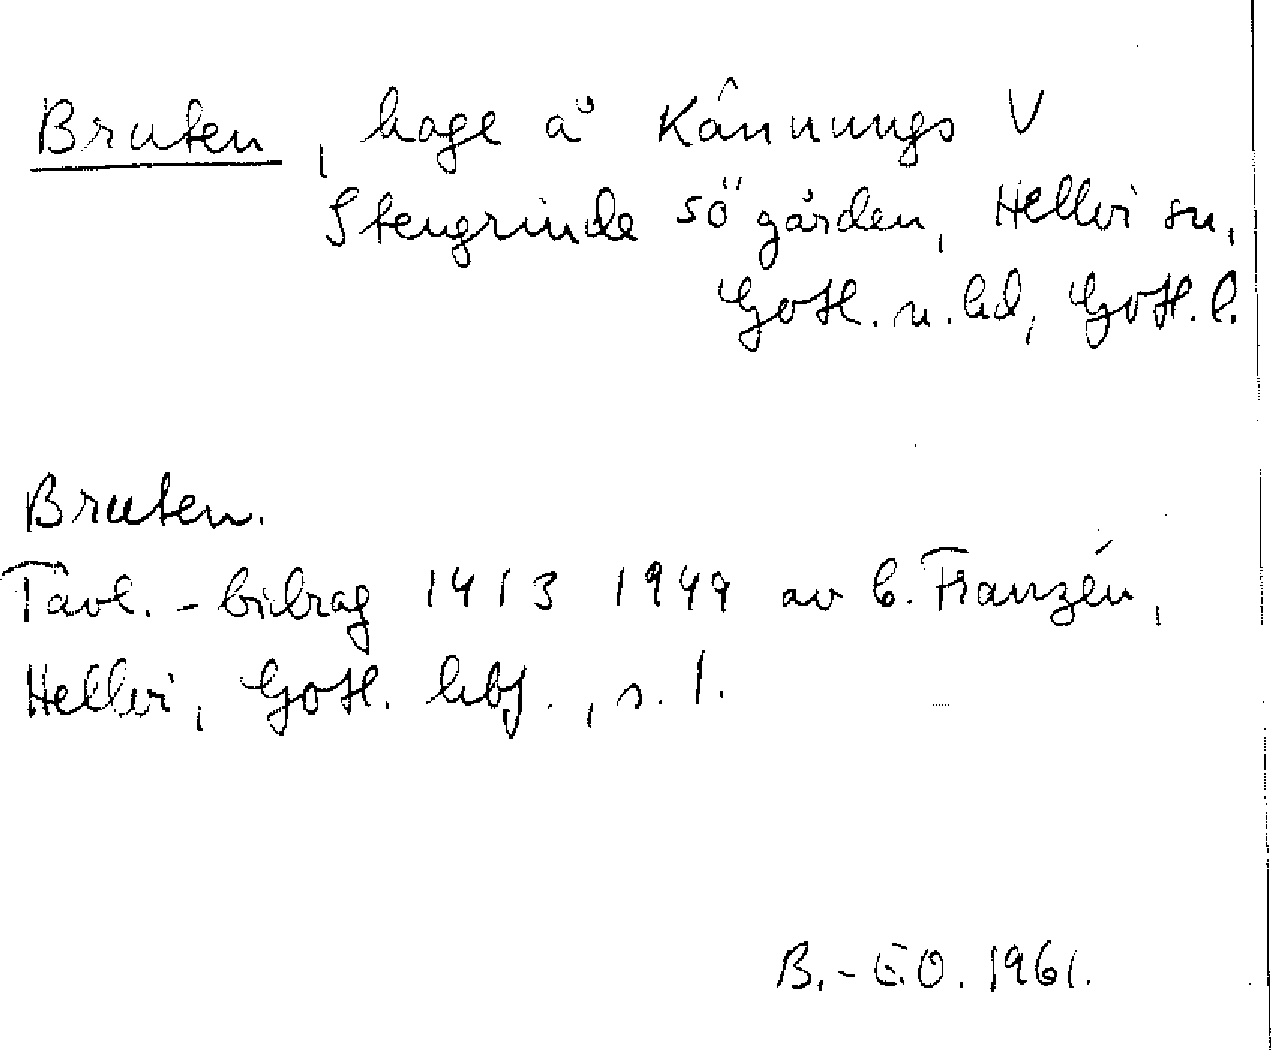 Bruten, hage å Kännungs V
Stengrinde sö gården, Hellvi sn,
Gotl. n. hd, Gotl. l.
Bruten.
Tävl.-bidrag 1413 1947 av C. Franzén,
Hellvi, Gotl. hbf., s. 1.
B.-E.O. 1961.